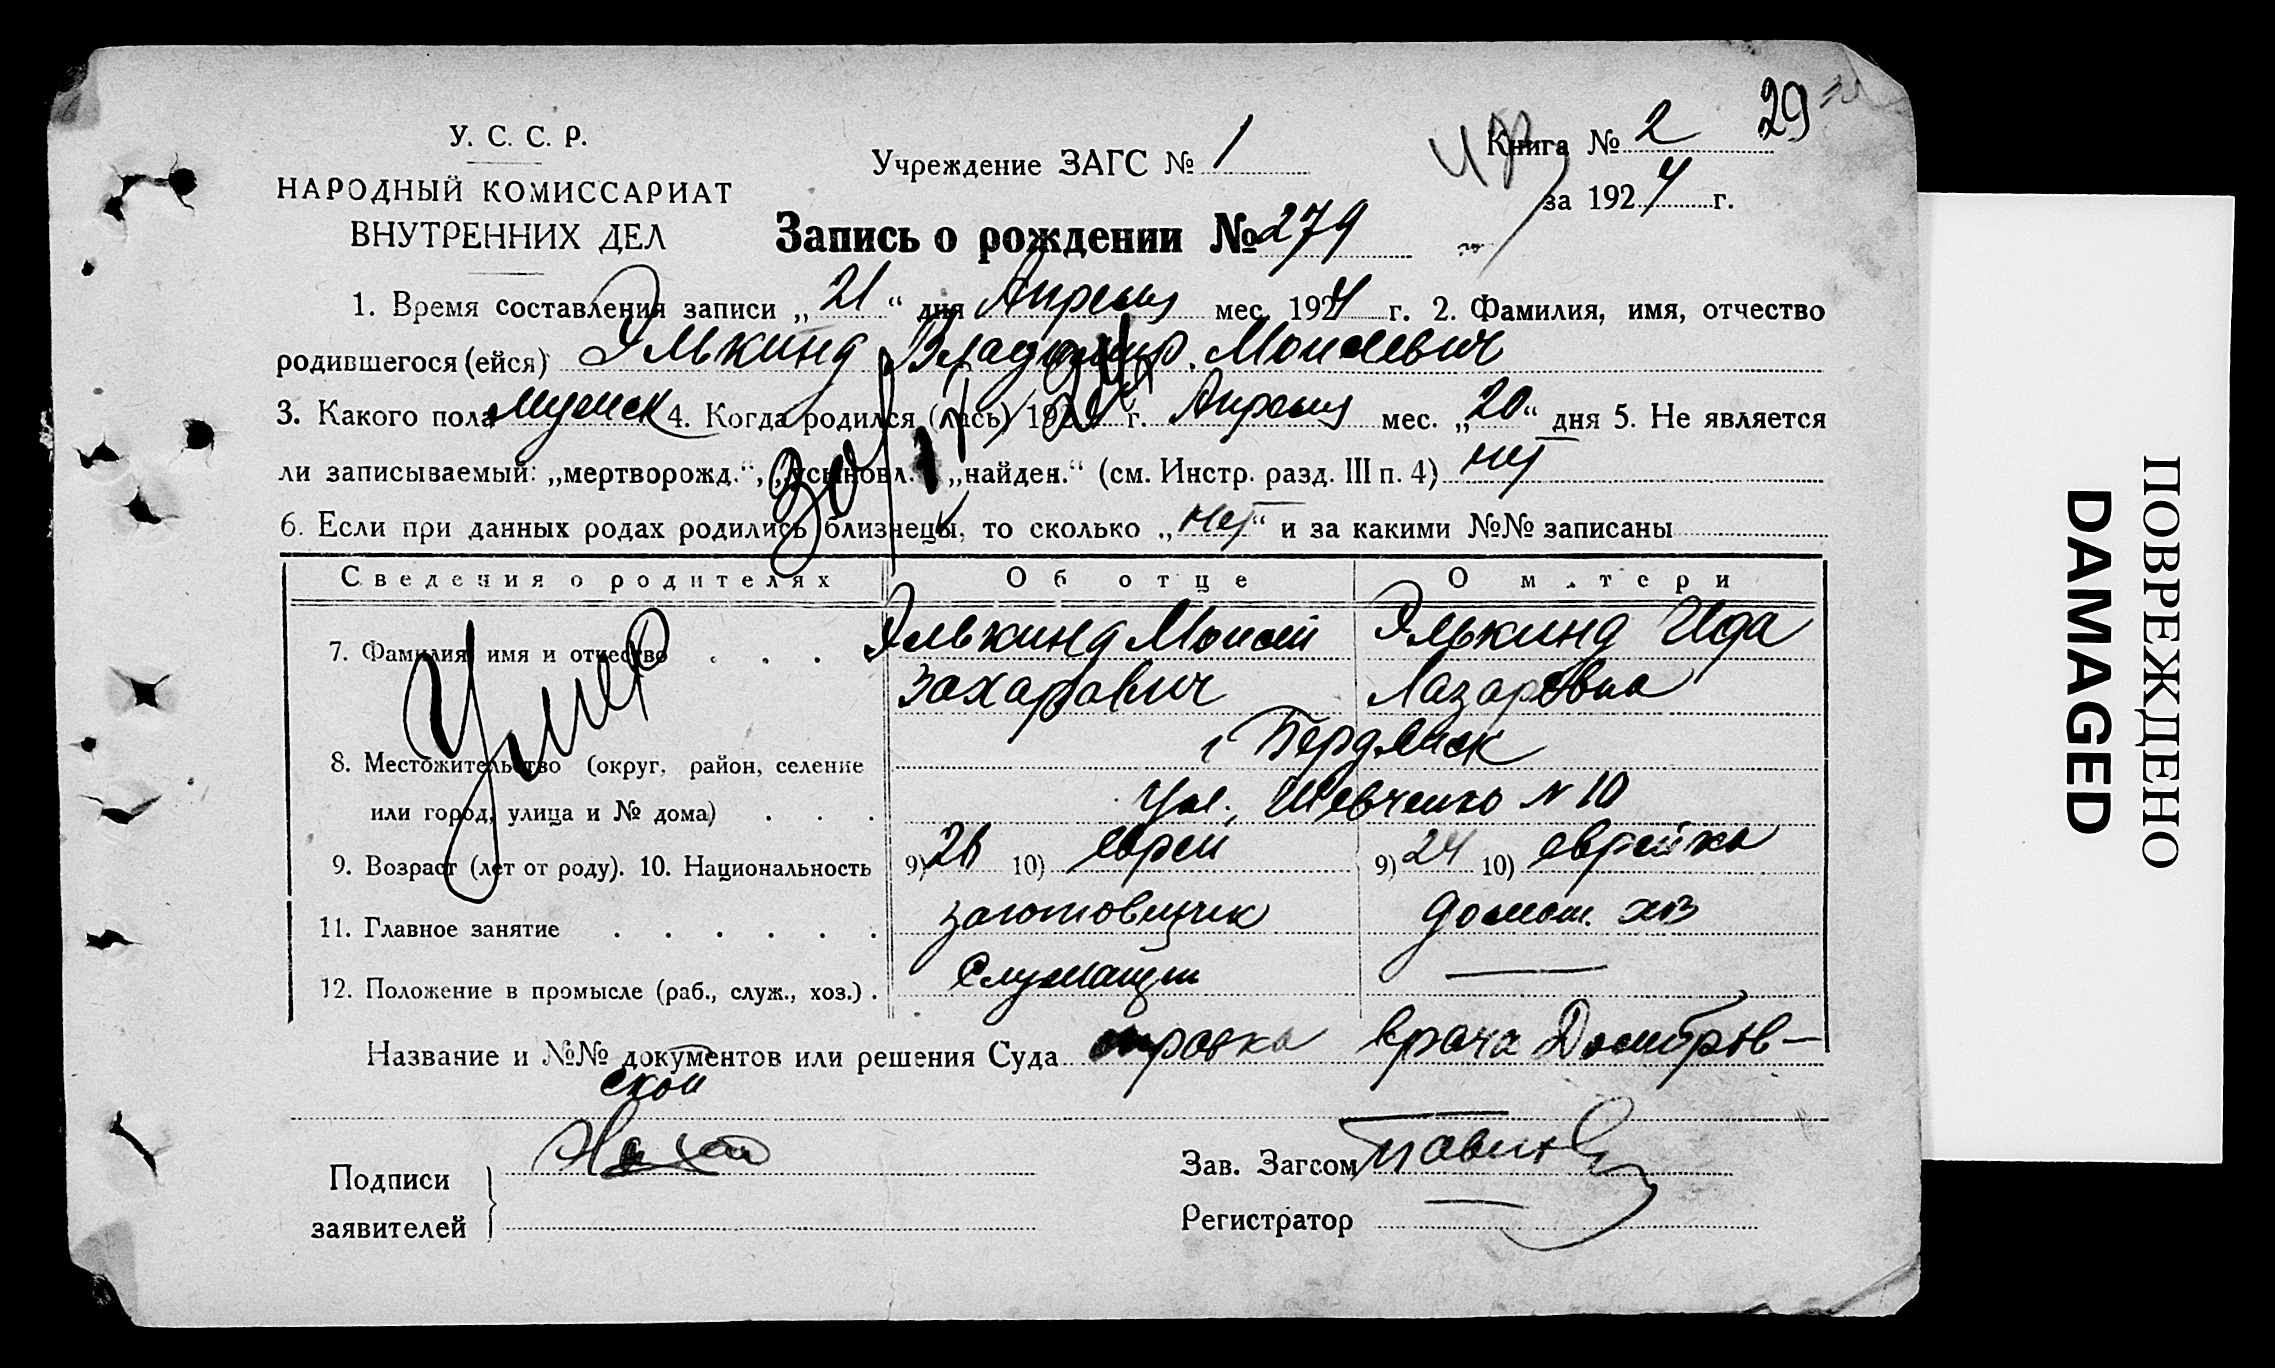 29
У. С. С. Р.
Учреждение ЗАГС № 1
Книга № 2
НАРОДНЫЙ КОМИССАРИАТ
за 1924 г.
ВНУТРЕННИХ ДЕЛ
Запись о рождении № 279
1. Время составления записи „ 21 “ дня Апреля мес. 1924 г. 2. Фамилия, имя, отчество
родившегося (ейся) Элькинд Владимир Моисеевич
3. Какого пола мужск 4. Когда родился (лась) 1924 г. Апреля мес. „ 20 “ дня 5. Не является
ли записываемый: „мертворожд.“, „усыновл.“ „найден.“ (см. Инстр. разд. III п. 4) нет
6. Если при данных родах родились близнецы, то сколько „ нет “ и за какими №№ записаны
Сведения о родителях Об отце О матери
7. Фамилия, имя и отчество . . . Элькинд Моисей Элькинд Ида
Захарович Лазаревна
Умер
8. Местожительство (округ, район, селение г Бердянск
или город, улица и № дома) . . . ул. Шевченко № 10
9. Возраст (лет от роду). 10. Национальность 9) 26 10) еврей 9) 24 10) еврейка
11. Главное занятие . . . . . . заготовщик домаш. хоз
12. Положение в промысле (раб., служ., хоз.) . Служащий —
Название и №№ документов или решения Суда справка врача Домбров-
ской
Подписи
заявителей
Зав. Загсом
Регистратор —
ПОВРЕЖДЕНО
DAMAGED